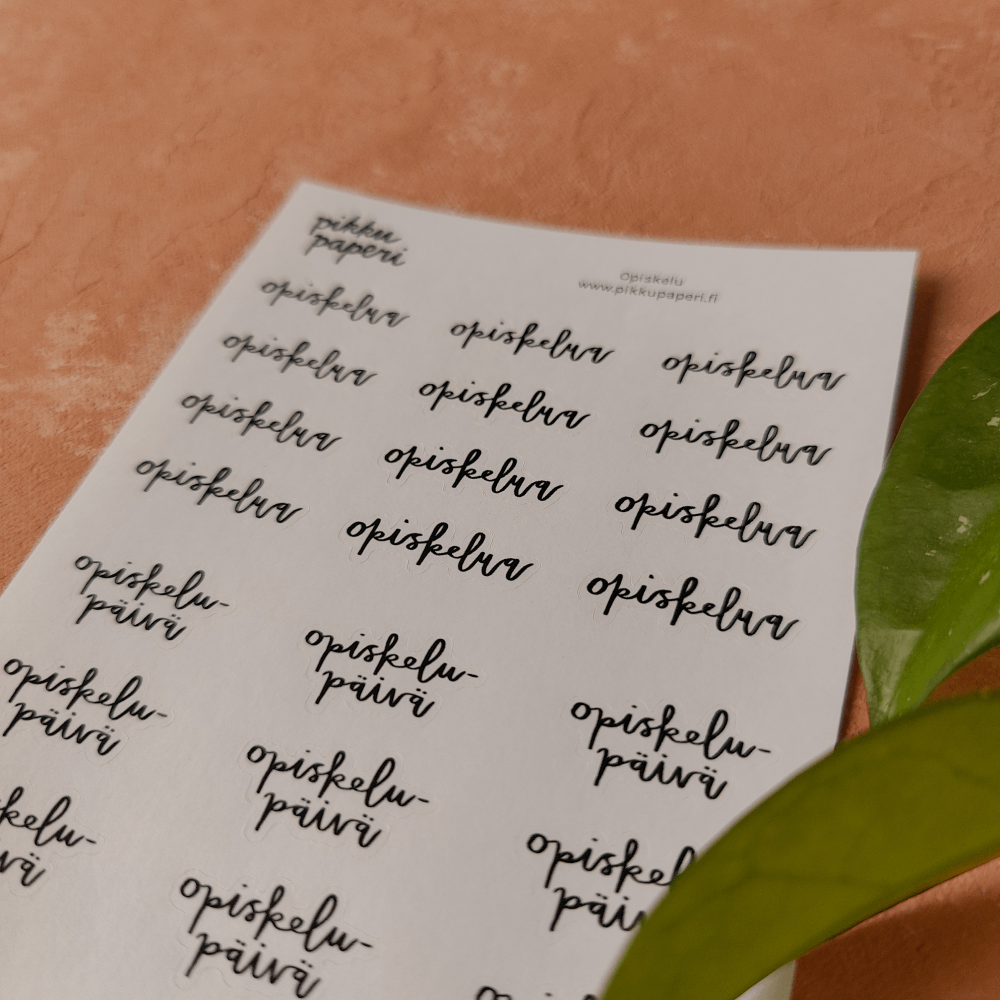 pikku
paperi
Opiskelu
www.pikkupaperi.fi
opiskelua opiskelua opiskelua
opiskelua opiskelua opiskelua
opiskelua opiskelua opiskelua
opiskelua opiskelua opiskelua
opiskelu-
päivä
opiskelu-
päivä
opiskelu-
päivä
opiskelu-
päivä
opiskelu-
päivä
opiskel
päi
kelu-
vä
opiskelu-
päivä